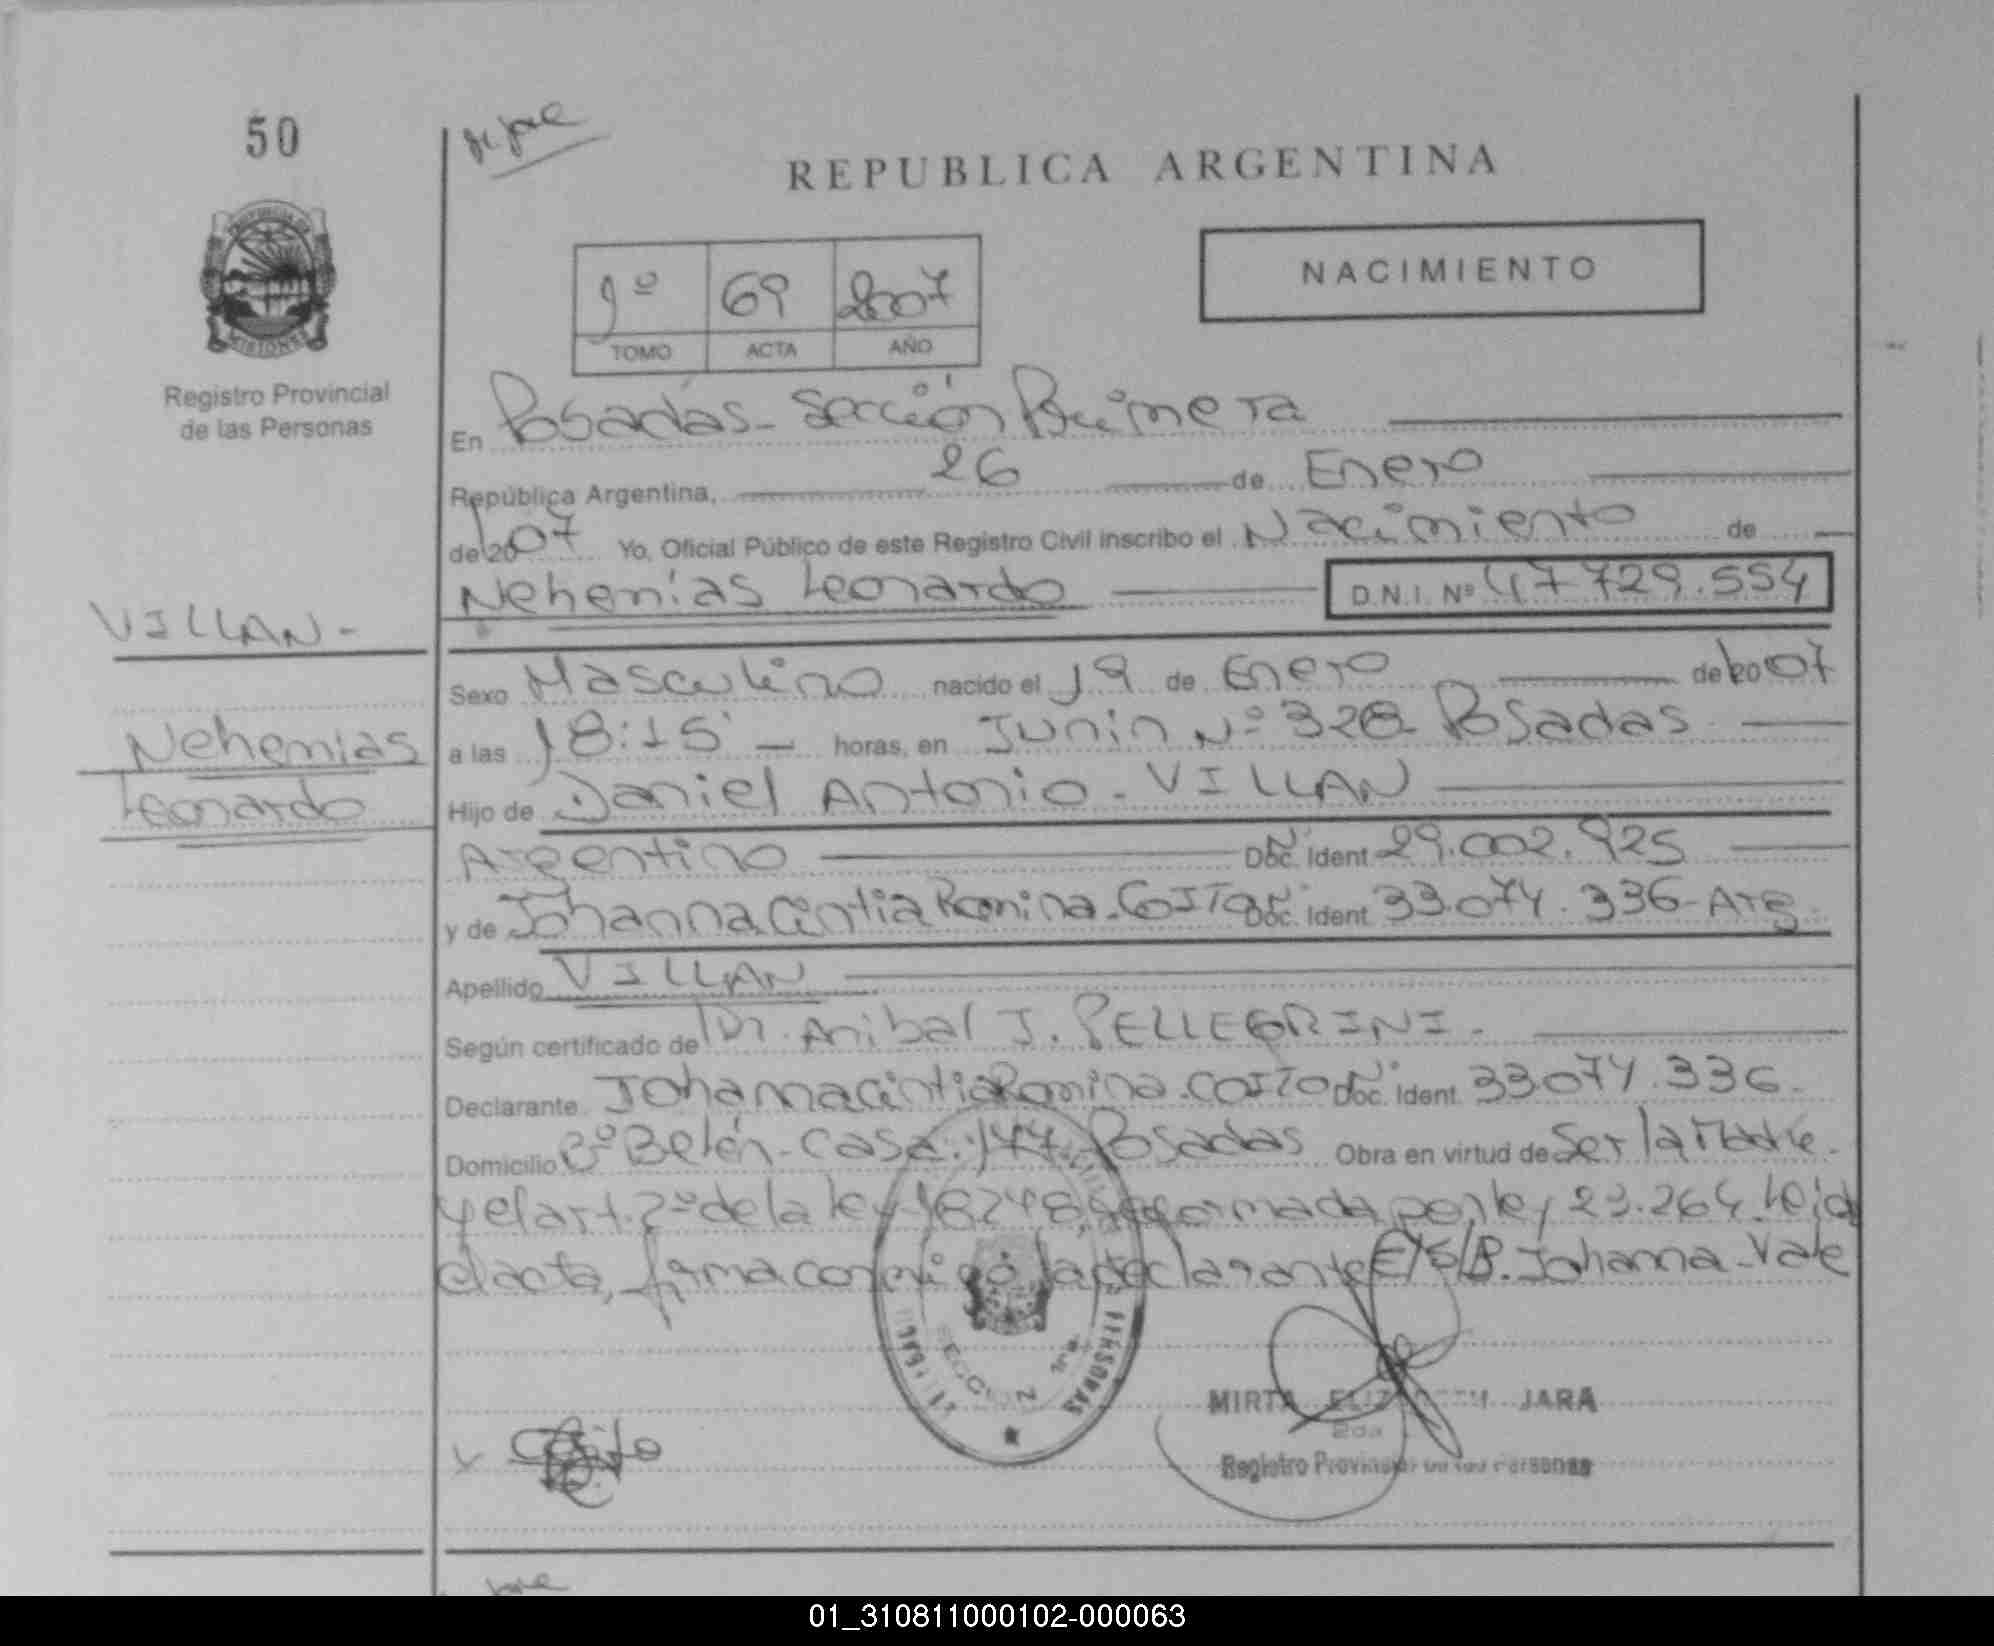 50
REPUBLICA ARGENTINA
1º 69 2007
TOMO ACTA AÑO
NACIMIENTO
PROVINCIA DE
MISIONES
Registro Provincial
de las Personas
En Posadas - Sección Primera
República Argentina, 26 de Enero
de 2007 Yo, Oficial Público de este Registro Civil inscribo el Nacimiento de
Nehemías Leonardo D.N.I. Nº 47 729.554
VILLAN -
Nehemias
Leonardo
Sexo Masculino nacido el 19 de Enero de 2007
a las 18:15 horas, en Junín Nº 328 Posadas
Hijo de Daniel Antonio - VILLAN
Argentino Doc. Ident. Nº 29.002.925
y de Johanna Cintia Romina - COITO Doc. Ident. Nº 33.074.336 - Arg.
Apellido VILLAN
Según certificado de Dr. Anibal J. PELLEGRINI -
Declarante Johanna Cintia Romina - COITO Doc. Ident. Nº 33.074.336 -
Domicilio Bº Belén - Casa: 177 Posadas Obra en virtud de Ser la Madre -
y el art. 2º de la ley 18248, reformada por ley 23.264. Leid
el acta, firma conmigo la declarante E/S/B. Johanna - Vale
SECCION 1ra
PERSONAS
MIRTA ELIZABETH JARA
Registro Provincial de las Personas
Coito
01_310811000102-000063